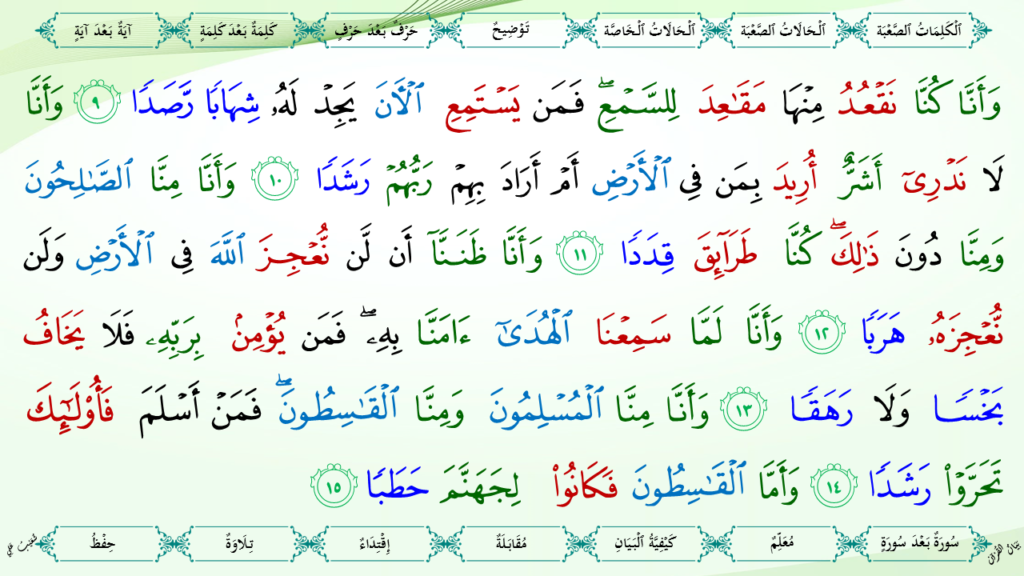 ٱلْكَلِمَاتُ ٱلصَّعْبَة ٱلْحَالَاتُ ٱلصَّعْبَة ٱلْحَالَاتُ ٱلْخَاصَّة تَوْضِيحٌ حَرْفٌ بَعْدَ حَرْفٍ كَلِمَةٌ بَعْدَ كَلِمَةٍ آيَةٌ بَعْدَ آيَةٍ
وَأَنَّا كُنَّا نَقْعُدُ مِنْهَا مَقَٰعِدَ لِلسَّمْعِۖ فَمَن يَسْتَمِعِ ٱلْأَنَ يَجِدْ لَهُۥ شِهَابًا رَّصَدًا ٩ وَأَنَّا
لَا نَدْرِىٓ أَشَرٌّ أُرِيدَ بِمَن فِى ٱلْأَرْضِ أَمْ أَرَادَ بِهِمْ رَبُّهُمْ رَشَدًا ١٠ وَأَنَّا مِنَّا ٱلصَّٰلِحُونَ
وَمِنَّا دُونَ ذَٰلِكَۖ كُنَّا طَرَآئِقَ قِدَدًا ١١ وَأَنَّا ظَنَنَّآ أَن لَّن نُّعْجِزَ ٱللَّهَ فِى ٱلْأَرْضِ وَلَن
نُّعْجِزَهُۥ هَرَبًا ١٢ وَأَنَّا لَمَّا سَمِعْنَا ٱلْهُدَىٰٓ ءَامَنَّا بِهِۦۖ فَمَن يُؤْمِنۢ بِرَبِّهِۦ فَلَا يَخَافُ
بَخْسًا وَلَا رَهَقًا ١٣ وَأَنَّا مِنَّا ٱلْمُسْلِمُونَ وَمِنَّا ٱلْقَٰسِطُونَۖ فَمَنْ أَسْلَمَ فَأُو۟لَٰٓئِكَ
تَحَرَّوْا۟ رَشَدًا ١٤ وَأَمَّا ٱلْقَٰسِطُونَ فَكَانُوا۟ لِجَهَنَّمَ حَطَبًا ١٥
سُورَةٌ بَعْدَ سُورَةٍ مُعَلِّمٌ كَيْفِيَّةُ ٱلْبَيَانِ مُقَابَلَةٌ إِقْتِدَاءٌ تِلَاوَةٌ حِفْظُ
بَيَانُ ٱلْقُرْآنِ